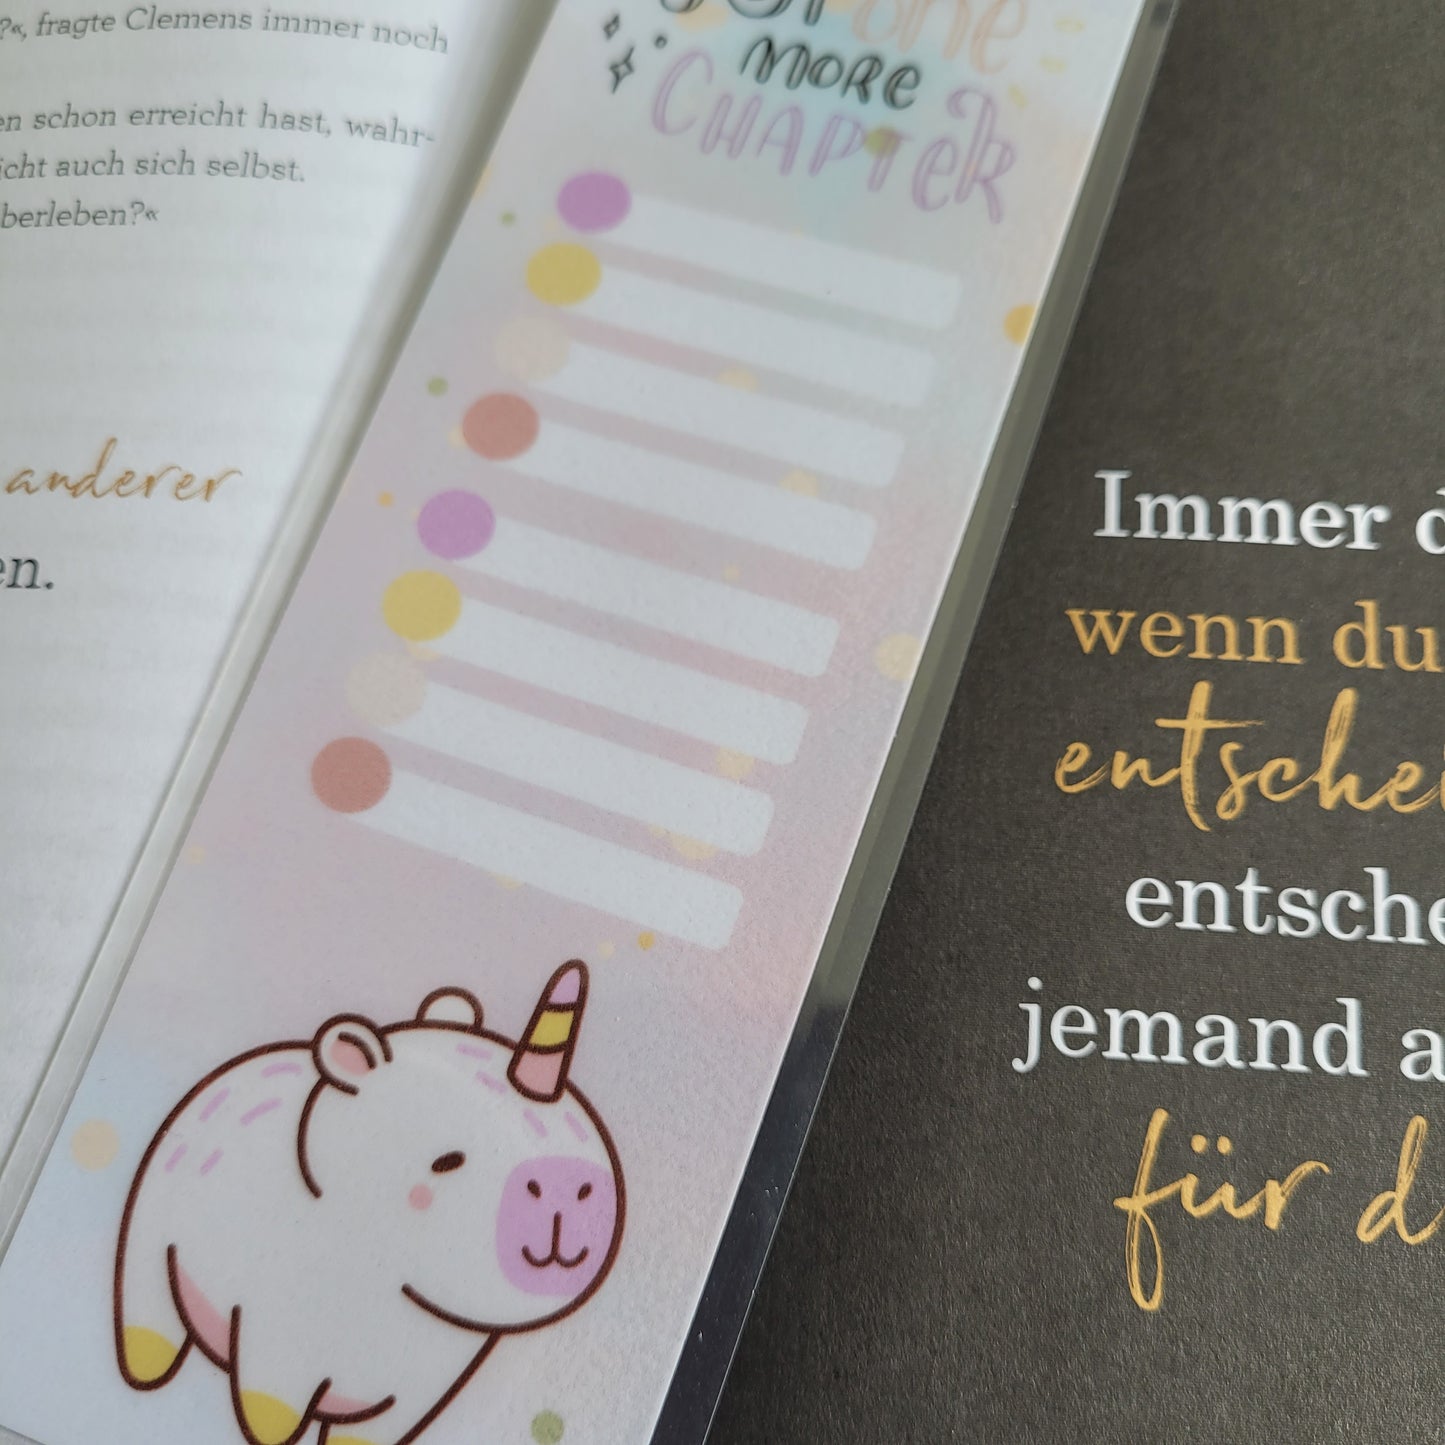 ?«, fragte Clemens immer noch
en schon erreicht hast, wahr-
icht auch sich selbst.
berleben?«
anderer
en.
one
MORE
CHAPTER
Immer d
wenn du
entschei
entsche
jemand a
für d